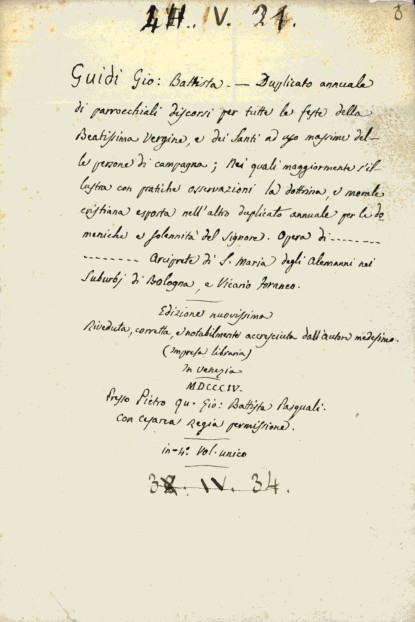 IV. 21.
Guidi Gio: Battista. — Dupplicato annuale
di parrocchiali discorsi per tutte le feste della
Beatissima Vergine, e dei Santi ad uso massime del-
le persone di campagna; Nei quali maggiormente s'il-
lustra con pratiche osservazioni la dottrina, e morale
cristiana esposta nell'altro duplicato annuale per le do-
meniche e solennità del Signore. Opera di -------
-------- Arciprete di S. Maria degli Alemanni nei
Suburbj di Bologna, e Vicario foraneo.
Edizione nuovissima
Riveduta, corretta, e notabilmente accresciuta dall'autore medesimo.
(Impresa libraria)
In Venezia
MDCCCIV.
Presso Pietro qu. Gio: Battista Pasquali.
Con cesarea Regia permissione.
in-4° Vol. unico
IV. 34.